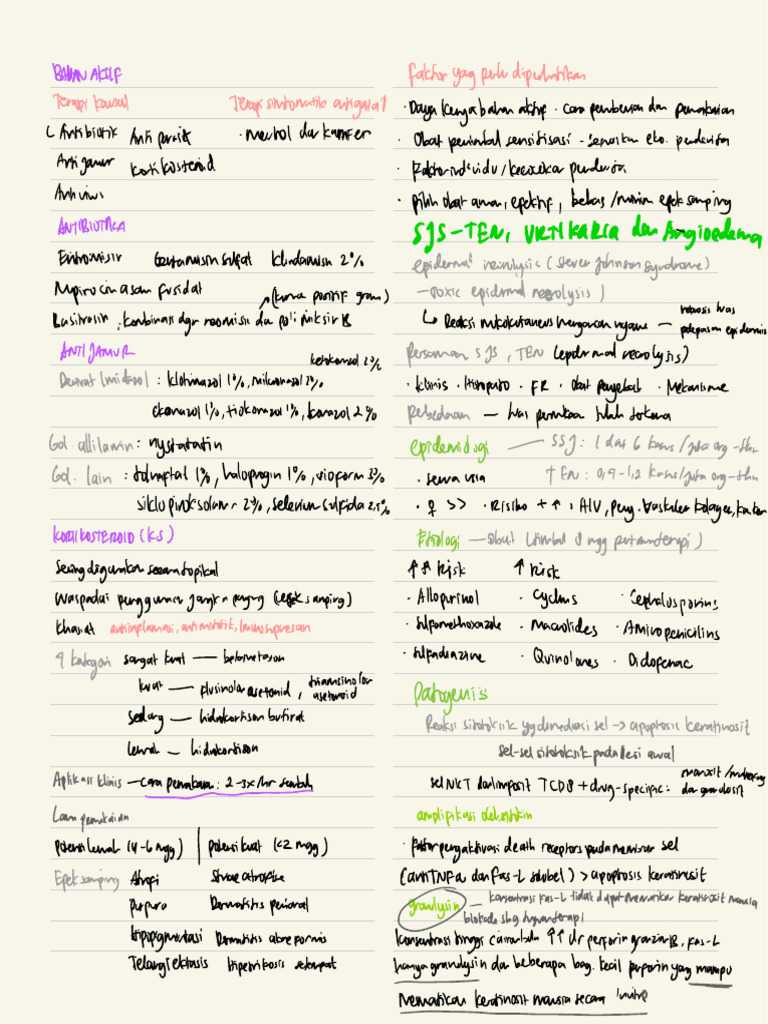 BAHAN AKTIF
Terapi kausal Terapi simtomatik antigatal
Antibiotik Anti parasit · Menthol dan kamfer
Antijamur kortikosteroid
Antivirus
ANTIBIOTIKA
Eritromisin Gentamisin sulfat klindamisin 2%
Mupirocin asam fusidat (kuman positif gram)
Basitrosin : kombinasi dgn neomisin dan polimiksin B
ANTIJAMUR ketokonazol 2%
Derivat Imidazol : klotrimazol 1%, mikonazol 2%
ekonazol 1%, tiokonazol 1%, 2%
Gol. allilamin : nystatatin
Gol. lain : tolnaftat 1%, haloprogin 1%, vioform 3%
siklopiroksolamin 2%, selenium sulfida 2,5%
KORTIKOSTEROID (KS)
Sering digunakan secara topikal
Waspadai penggunaan jangka panjang (efek samping)
Khasiat antiinflamasi, antimitotik, imunosupresan
4 kategori sangat kuat — betametason
kuat — asetonid, triamsinolon asetonid
sedang — hidrokortison butirat
lemah — hidrokortison
Aplikasi klinis — cara pemakaian : 2-3x/hr sembuh
Lama pemakaian
potensi lemah (4-6 mgg) potensi kuat (<2 mgg)
Efek samping Atrofi Striae atrofise
Purpura Dermatitis perioral
Hipopigmentasi Dermatitis akneiformis
Telangiektasis Hipertrikosis setempat
Faktor yang perlu diperhatikan
· Daya kerja bahan aktif · cara pemberian dan pemakaian
· Obat penimbul sensitisasi - sesuaikan eko. penderita
· Faktor individu/kecocokan penderita
· Pilih obat aman, efektif, bebas/minim efek samping
SJS-TEN, URTIKARIA dan Angioedema
epidermal necrolysis (Steven Johnson Syndrome)
- toxic epidermal necrolysis)
Reaksi mukokutaneus mengancam nyawa — nekrosis luas pelepasan epidermis
Persamaan SJS, TEN (epidermal necrolysis)
· klinis · Histopato · FR · Obat penyebab · Mekanisme
Perbedaan — luas permukaan tubuh terkena
epidemiologi — SSJ : 1 dan 6 kasus/juta org-thn
· semua usia TEN : 0,4-1,2 kasus/juta org-thn
· ♀ >> · Risiko + ↑ : HIV, Peny. Vaskuler kolagen, kanker
Etiologi — obat (timbul 8 mgg pertama terapi)
↑↑ Risk ↑ Risk
· Allopurinol · · Cephalosporins
· Sulfomethoxazole · Macrolides · Aminopenicilins
· Sulfadiazine · Quinolones · Diclofenac
Patogenis
Reaksi sitotoksik yg dimediasi sel → apoptosis keratinosit
sel-sel sitotoksik pada lesi awal
sel NKT dan limfosit T CD8 + drug-specific : monosit/makrofag dan granulosit
amplifikasi oleh sitokin
· Faktor pengaktivasi death receptors pada membran sel
(anti TNFα dan Fas-L solubel) > apoptosis keratinosit
granulysin — konsentrasi Fas-L tidak dapat mematikan keratinosit manusia
konsentrasi tinggi cairan bula ↑↑ dr perforin granzim B, Fas-L
hanya granulysin dan beberapa bag. kecil perforin yang mampu
mematikan keratinosit manusia secara invitro